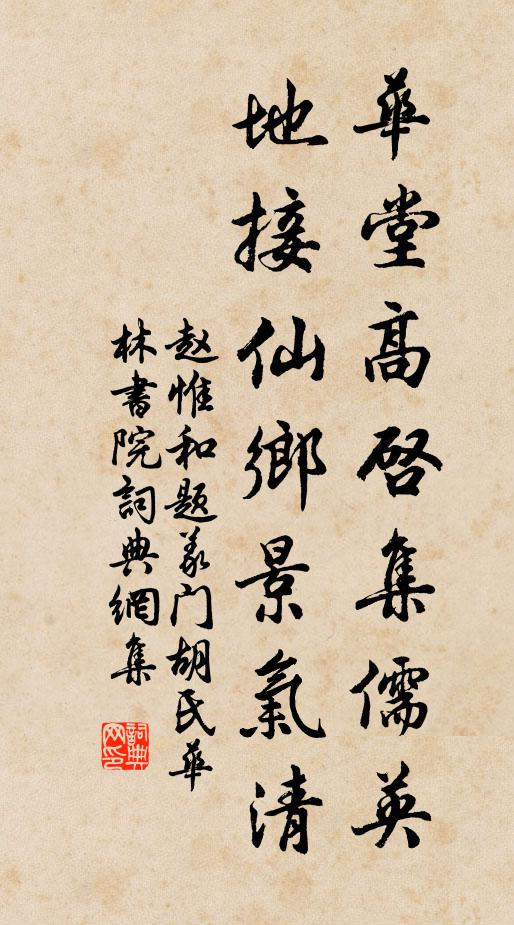 華堂高啓集儒英
地接仙鄉景氣清
赵惟和题义门胡氏華
林書院詞典網集
詞典网印